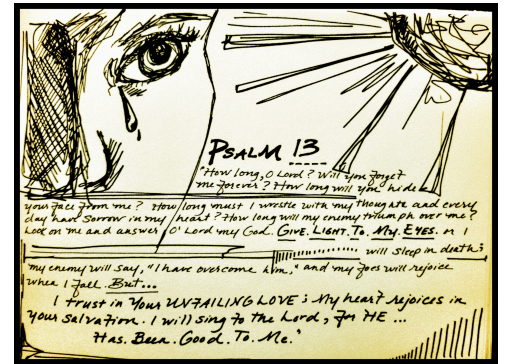 PSALM 13
"How long, O Lord? Will you forget
me forever? How long will you hide
your face from me? How long must I wrestle with my thoughts and every
day have sorrow in my heart? How long will my enemy triumph over me?
Look on me and answer O' Lord my God. GIVE. LIGHT. TO. My. EYES. or I
will sleep in death;
my enemy will say, "I have overcome him," and my foes will rejoice
when I fall. But...
I trust in Your UNFAILING LOVE; My heart rejoices in
your salvation. I will sing to the Lord, for HE ...
Has. Been. Good. To. Me."